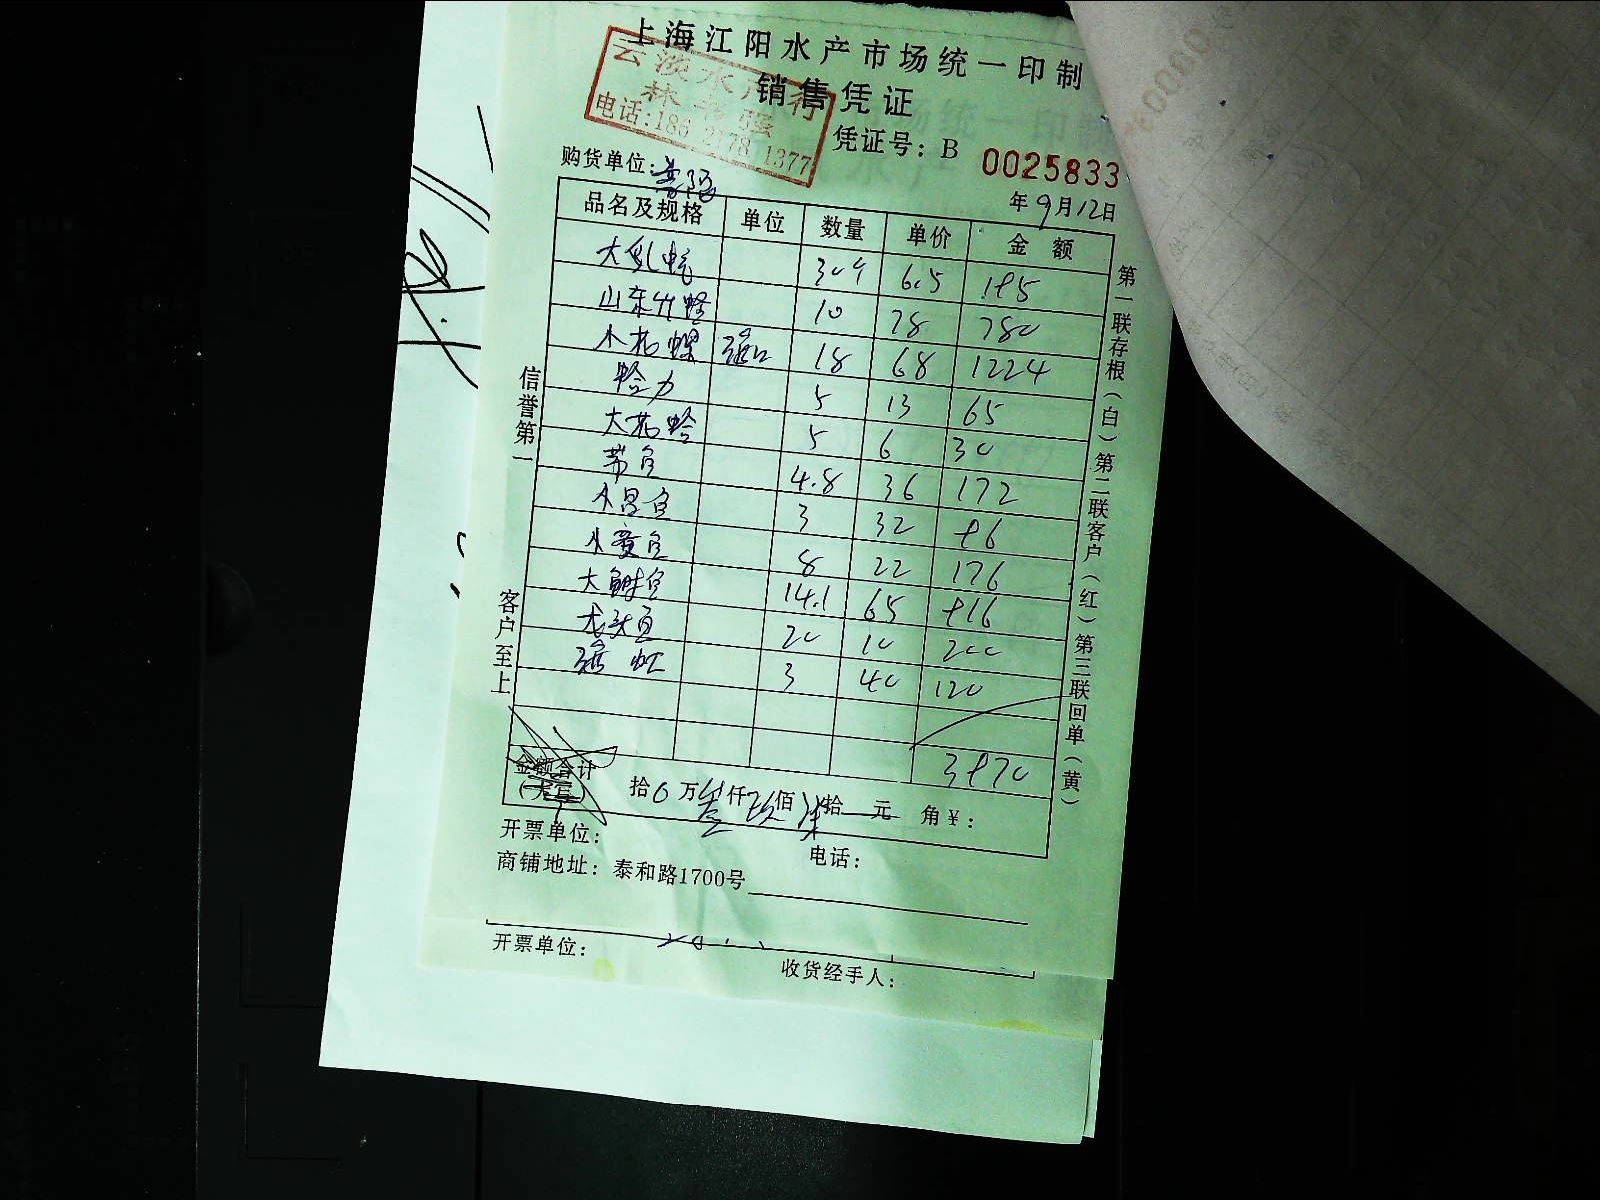 上海江阳水产市场统一印制
销售凭证
云淡水产行
电话:186 2178 1377
凭证号: B 0025833
购货单位:
年9月12日
品名及规格 单位 数量 单价 金额
大 6.5 195
山东竹蛏 10 78 780
小花螺 18 68 1224
蛤力 5 13 65
大花蛤 5 6 30
4.8 36 172
小昌鱼 3 32 96
小黄鱼 8 22 176
大鲜鱼 14.1 65 916
龙头鱼 20 10 200
3 40 120
3970
金额合计
(大写)
拾0万叁仟玖佰柒拾一元 角¥:
开票单位: 电话:
商铺地址: 泰和路1700号
开票单位:
收货经手人:
信誉第一
客户至上
第一联存根(白)第二联客户(红)第三联回单(黄)